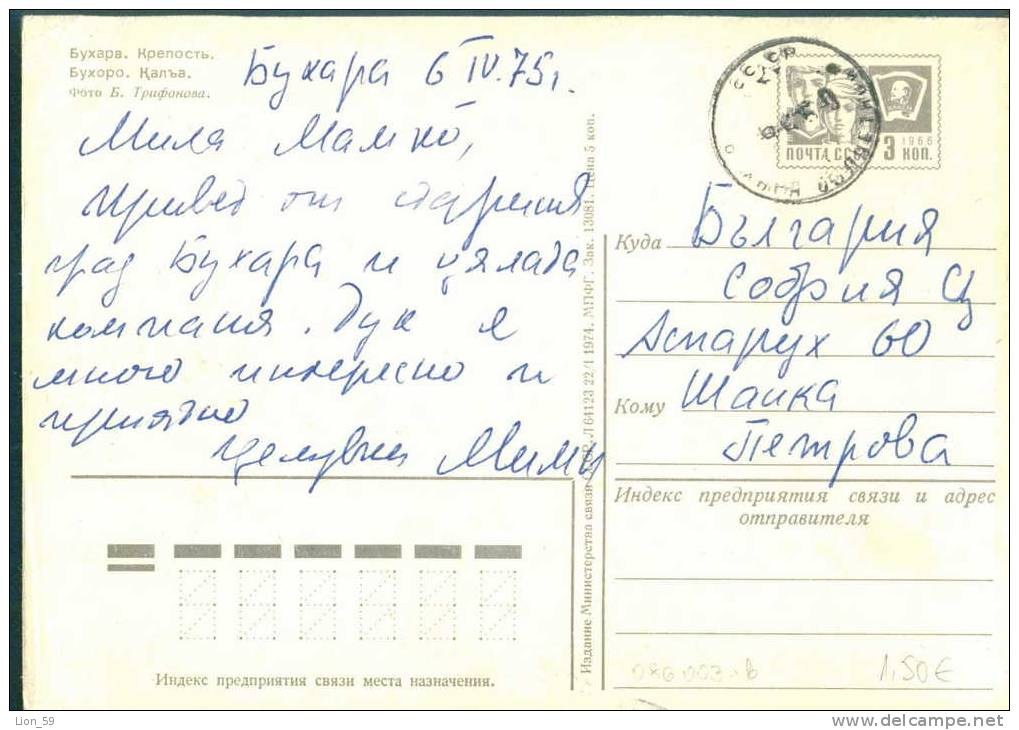 Бухара. Крепость.
Бухоро. Қалъа.
Фото Б. Трифонова.
Бухара 6 IV. 75 г.
Мила Мамко,
привет от старения
град Бухара и цялата
компания. Тук е
много интересно и
приятно
Целувки Мими
Издание Министерства связи СССР. Л 64123 22/I 1974. МПФГ. Зак. 13081. Цена 5 коп.
СССР
ПОЧТА СССР
1966
3 КОП.
Куда България
София Ц
Аспарух 60
Кому
Петрова
Индекс предприятия связи и адрес
отправителя
Индекс предприятия связи места назначения.
1,50€
Lion_59
delcampe.net